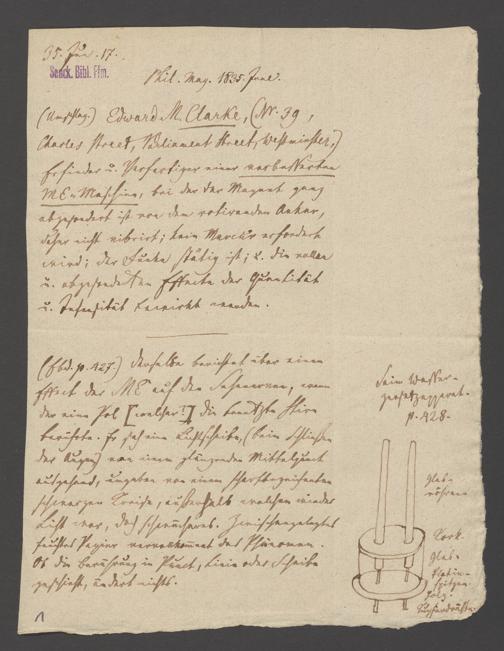 35. Jun. 17.
Senck. Bibl. Ffm.
Phil. Mag. 1835. June.
(Umschlag.) Edward M. Clarke, (Nr. 39,
Charles Street, Parliament Street, Westminster,)
Erfinder u. Verfertiger einer verbesserten
ME Maschine, bei der der Magnet ganz
abgesondert ist von dem rotirenden Anker,
daher nicht vibrirt; kein Mercur erfordert
wird; der Funke stätig ist; u. die vollen
u. abgesonderten Effecte der Quantität
u. Intensität bewirkt werden.
(Ebd. p. 427.) Derselbe berichtet über einen
Effect der ME auf den Sehnerven, wenn
der eine Pol [welcher?] die benetzte Stirn
berührte. Er sah eine Lichtscheibe, (beim Schließen
der Augen) von einem glänzenden Mittelpunct
ausgehend, umgeben von einem scharfbegränzten
schwarzen Kreise, außerhalb welchem wieder
Licht war, doch schwächeres. Zwischengelegtes
feuchtes Papier vervollkommnet das Phänomen.
Ob die Berührung in Punct, Linie oder Scheibe
geschieht, ändert nichts.
Sein Wasser-
zersetzapparat.
p. 428.
Glas-
röhren
Kork.
Glas.
Platin-
spitzen.
Holz.
Kupferdräthe.
1